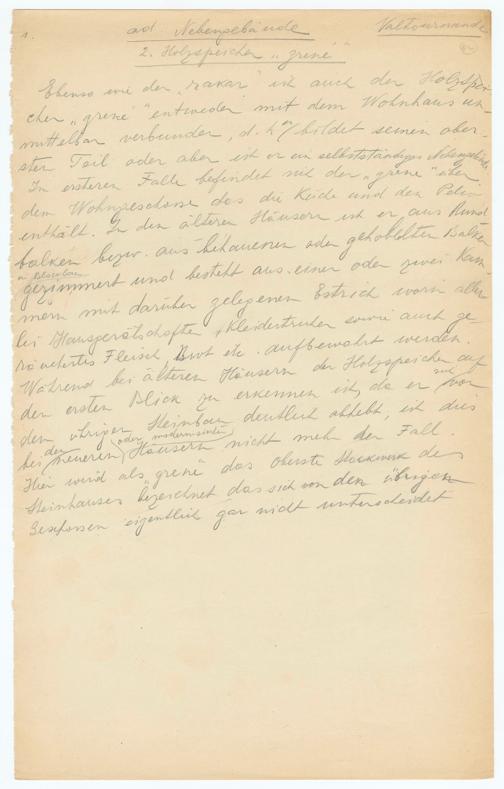 1. ad Nebengebäude Valtournanche
2. Holzspeicher „grenè"
Ebenso wie der „rakar" ist auch der Holzspei-
cher „grenè" entweder mit dem Wohnhaus un-
mittelbar verbunden, d. h. er bildet seinen ober-
sten Teil oder aber ist er ein selbstständiges Nebengebäude.
In ersteren Falle befindet sich der „grenè" über
dem Wohngeschosse das die Küche und den
enthält. In den älteren Häusern ist er aus Rund
balken bezw. aus behauenen oder gehobelten Balken
in Blockbau
gezimmert und besteht aus einer oder zwei Kam-
mern mit darüber gelegenen Estrich worin aller
lei Hausgerätschaften, Kleidertruhen sowie auch ge-
räuchertes Fleisch, Brot etc. aufbewahrt werden.
Während bei älteren Häusern der Holzspeicher auf
den ersten Blick zu erkennen ist, da er sich von
dem übrigen Steinbau deutlich abhebt, ist dies
bei den neueren (oder modernisierten) Häusern nicht mehr der Fall.
Hier wird als „grenè" das oberste Stockwerk des
Steinhauses bezeichnet das sich von den übrigen
Geschossen eigentlich gar nicht unterscheidet